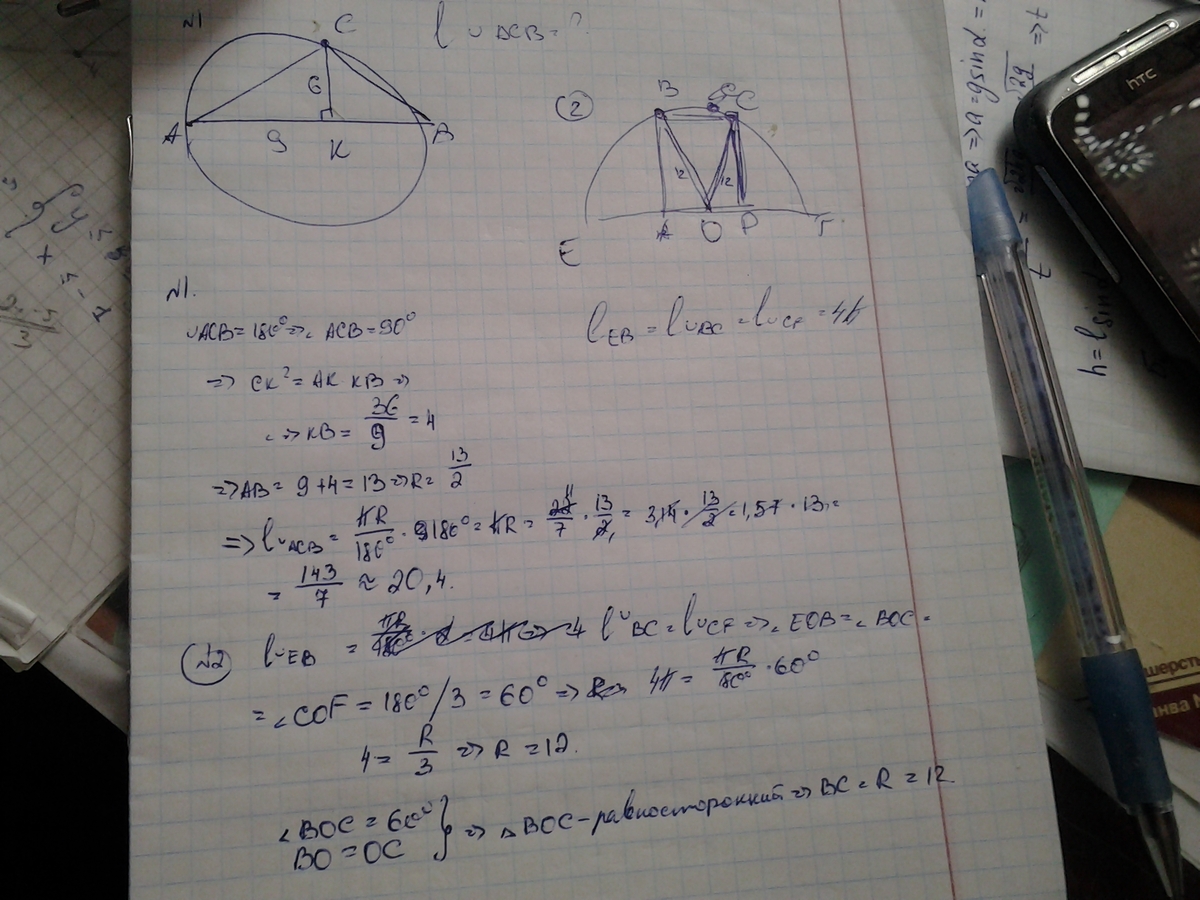 №1
C
l ◡ACB = ?
6
A 9 K B
②
B C
12 12
E A O P F
№1.
◡ACB = 180° => ∠ ACB = 90°
l EB = l◡BC = l◡CF = 4π
=> CK² = AK KB =>
=> KB = 36/9 = 4
=> AB = 9 + 4 = 13 => R = 13/2
=> l◡ACB = πR/180° · 180° = πR = 22/7 · 13/2 = 3,14 · 13/2 = 1,57 · 13 =
= 143/7 ≈ 20,4.
№2 l◡EB = l◡BC = l◡CF => ∠ EOB = ∠ BOC =
= ∠ COF = 180° / 3 = 60° => 4π = πR/180° · 60°
4 = R/3 => R = 12.
∠ BOC = 60°
BO = OC } => △ BOC - равносторонний => BC = R = 12
hтc
a => a = g sin α
=> t
h = l sin α
шерсть